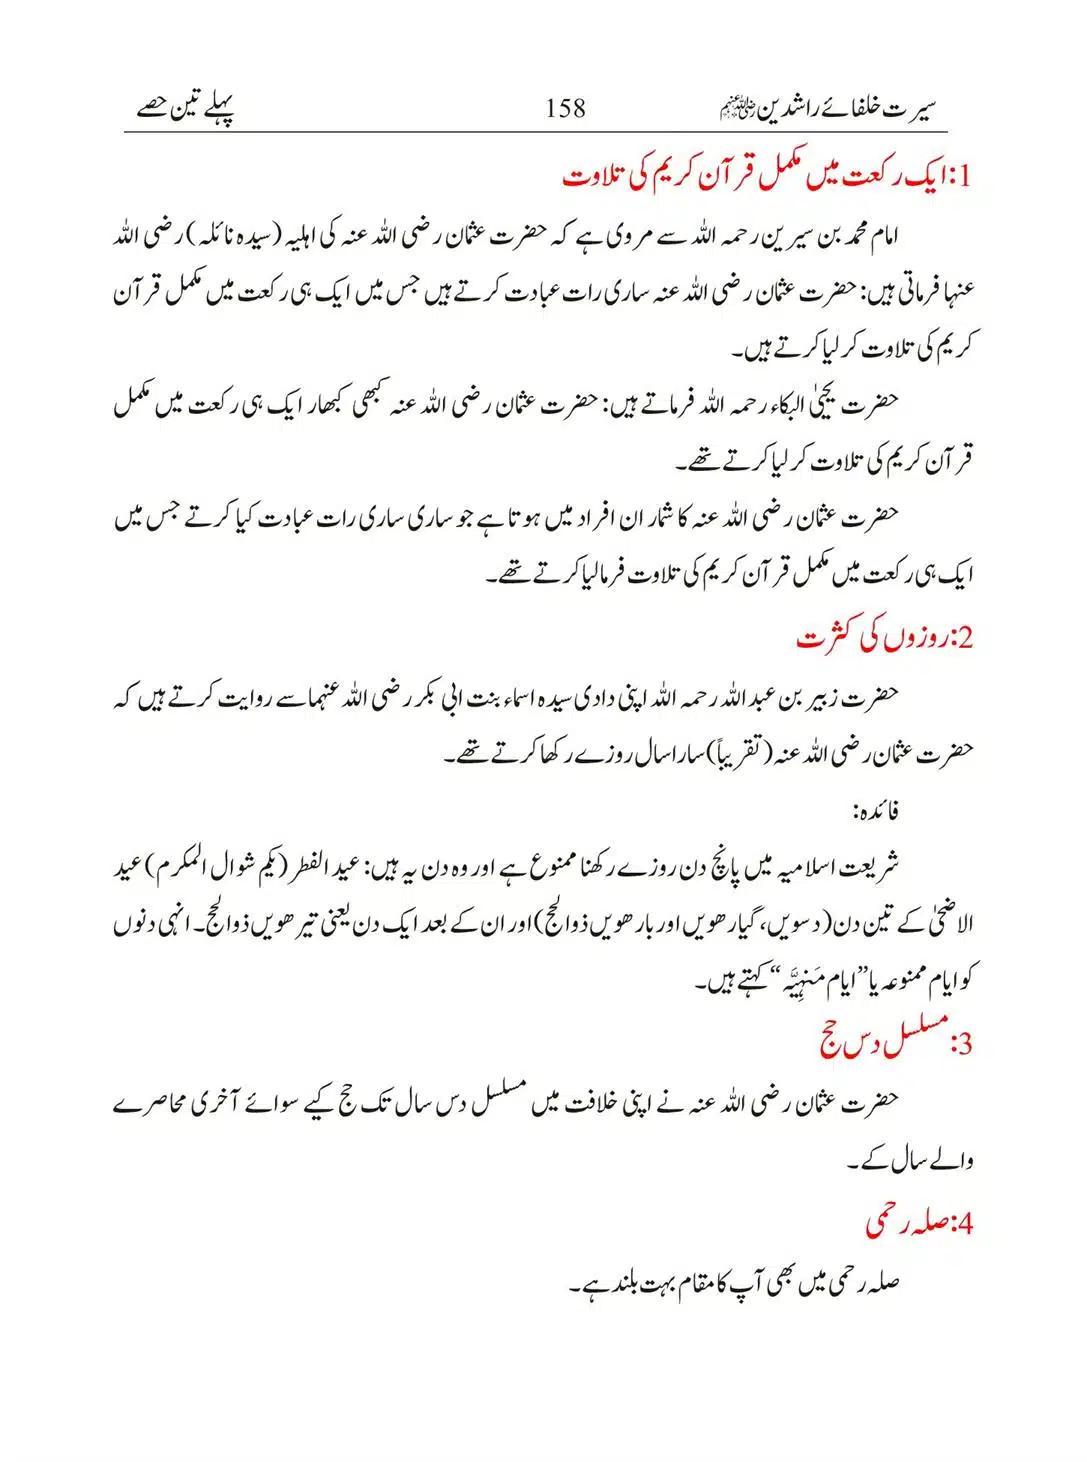 سیرت خلفائے راشدین رضی اللہ عنہم 158 پہلے تین حصے
1:ایک رکعت میں مکمل قرآن کریم کی تلاوت
امام محمد بن سیرین رحمہ اللہ سے مروی ہے کہ حضرت عثمان رضی اللہ عنہ کی اہلیہ (سیدہ نائلہ) رضی اللہ
عنہا فرماتی ہیں: حضرت عثمان رضی اللہ عنہ ساری رات عبادت کرتے ہیں جس میں ایک ہی رکعت میں مکمل قرآن
کریم کی تلاوت کر لیا کرتے ہیں۔
حضرت یحییٰ البکاء رحمہ اللہ فرماتے ہیں: حضرت عثمان رضی اللہ عنہ کبھی کبھار ایک ہی رکعت میں مکمل
قرآن کریم کی تلاوت کر لیا کرتے تھے۔
حضرت عثمان رضی اللہ عنہ کا شمار ان افراد میں ہوتا ہے جو ساری ساری رات عبادت کیا کرتے جس میں
ایک ہی رکعت میں مکمل قرآن کریم کی تلاوت فرما لیا کرتے تھے۔
2:روزوں کی کثرت
حضرت زبیر بن عبد اللہ رحمہ اللہ اپنی دادی سیدہ اسماء بنت ابی بکر رضی اللہ عنہما سے روایت کرتے ہیں کہ
حضرت عثمان رضی اللہ عنہ (تقریباً) سارا سال روزے رکھا کرتے تھے۔
فائدہ:
شریعت اسلامیہ میں پانچ دن روزے رکھنا ممنوع ہے اور وہ دن یہ ہیں: عید الفطر (یکم شوال المکرم) عید
الاضحیٰ کے تین دن (دسویں، گیارھویں اور بارھویں ذوالحج) اور ان کے بعد ایک دن یعنی تیرھویں ذوالحج۔ انہی دنوں
کو ایام ممنوعہ یا ”ایام مَنہِیَّہ“ کہتے ہیں۔
3:مسلسل دس حج
حضرت عثمان رضی اللہ عنہ نے اپنی خلافت میں مسلسل دس سال تک حج کیے سوائے آخری محاصرے
والے سال کے۔
4:صلہ رحمی
صلہ رحمی میں بھی آپ کا مقام بہت بلند ہے۔